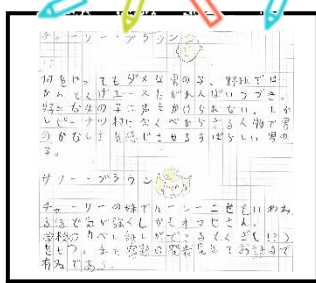 チャーリー・ブラウン
何をやってもダメな男の子、野球では
かんとくけんエースだがれんぱいつづき。
好きな女の子に声もかけられない。しか
しピーナツ村に欠くべからざる人物で男
のかなしさを感じさせるすばらしい男の
子。
サリー・ブラウン
チャーリーの妹でルーシー二世といわれ
るほど気が強くしかもオマセさん。
学校の
をもつ。また宿題の発表
有為である。